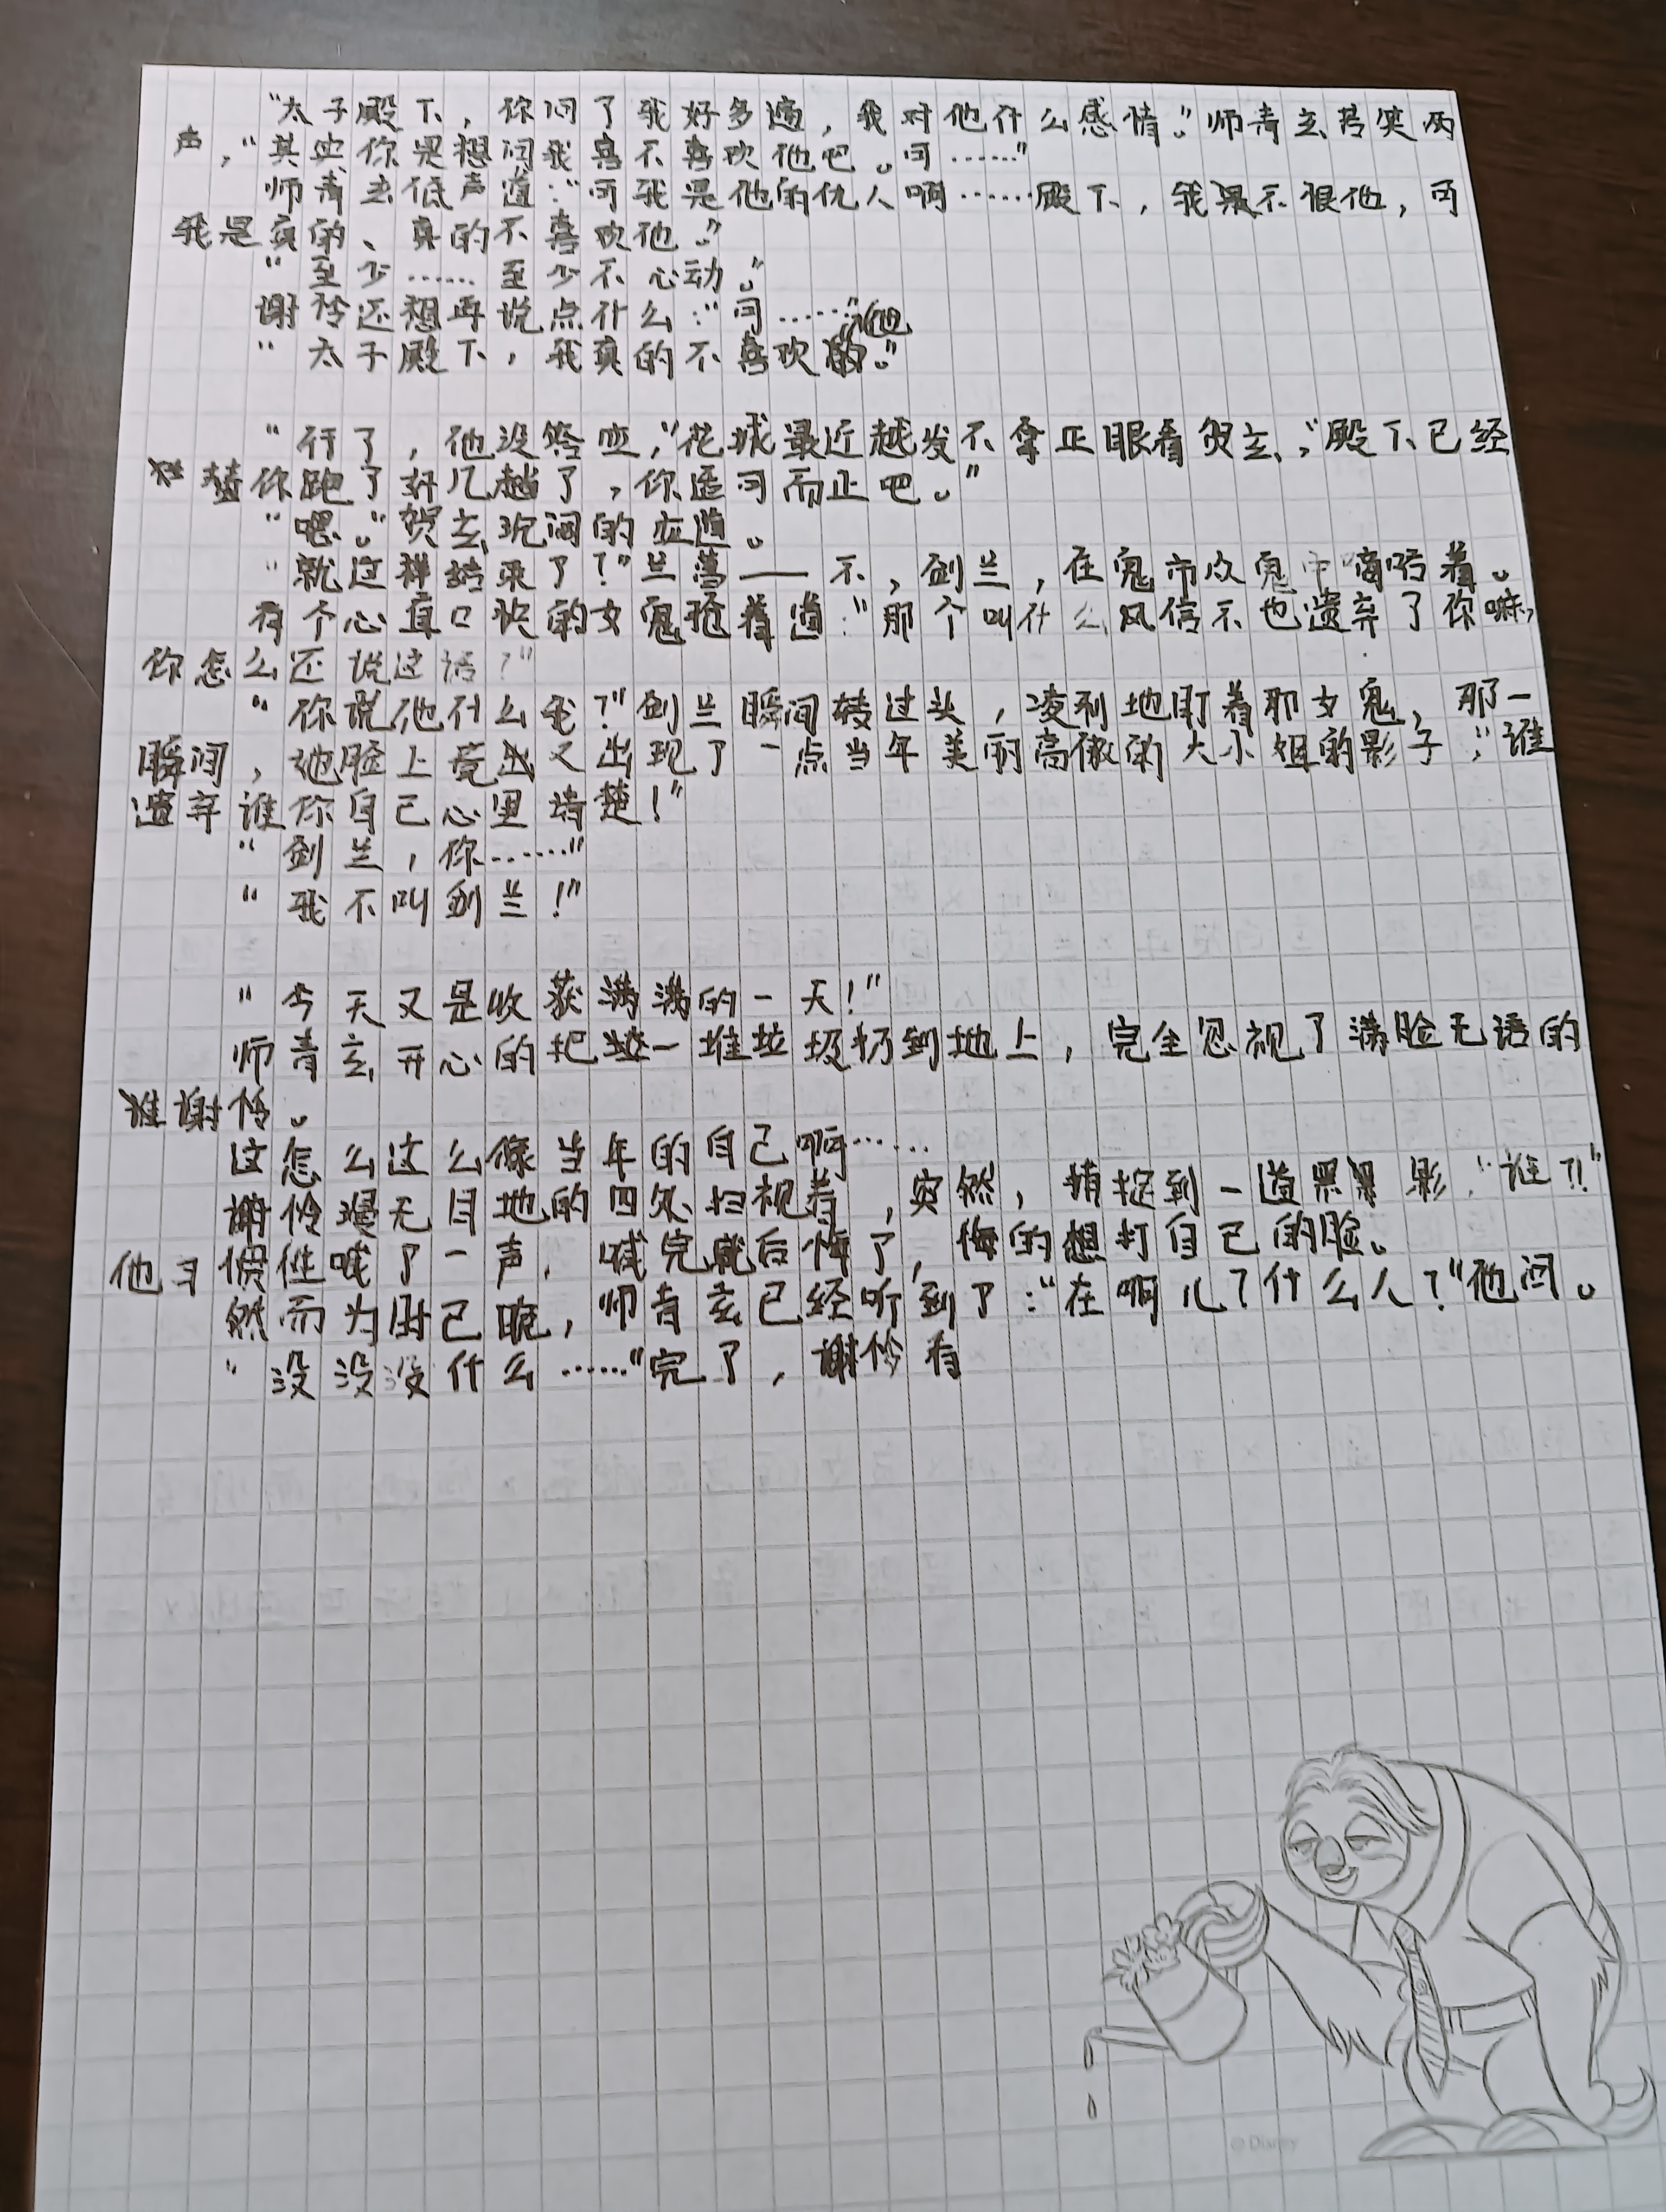 “太子殿下，你问了我好多遍，我对他什么感情。”师青玄苦笑两
声，“其实你是想问我喜不喜欢他吧。可……”
师青玄低声道：“可我是他的仇人啊……殿下，我是不恨他，可
我是真的、真的不喜欢他。”
“至少……至少不心动。”
谢怜还想再说点什么：“可……”
“太子殿下，我真的不喜欢他。”
“行了，他没答应，”花城最近越发不拿正眼看贺玄，“殿下已经
替你跑了好几趟了，你适可而止吧。”
“嗯。”贺玄沉闷的应道。
“就这样结束了？”兰菖——不，剑兰，在鬼市众鬼中嘀咕着。
有个心直口快的女鬼抢着道：“那个叫什么风信不也遗弃了你嘛，
你怎么还说这话？”
“你说他什么我？”剑兰瞬间转过头，凌利地盯着那女鬼，那一
瞬间，她脸上竟又出现了一点当年美丽高傲的大小姐的影子，“谁
遗弃谁你自己心里清楚！”
“剑兰，你……”
“我不叫剑兰！”
“今天又是收获满满的一天！”
师青玄开心的把一堆垃圾扔到地上，完全忽视了满脸无语的
谢怜。
这怎么这么像当年的自己啊……
谢怜漫无目地的四处扫视着，突然，捕捉到一道黑影，“谁？！”
他习惯性喊了一声，喊完就后悔了，悔的想打自己的脸。
然而为时已晚，师青玄已经听到了：“在啊儿？什么人？”他问。
“没没没什么……”完了，谢怜有
© Disney